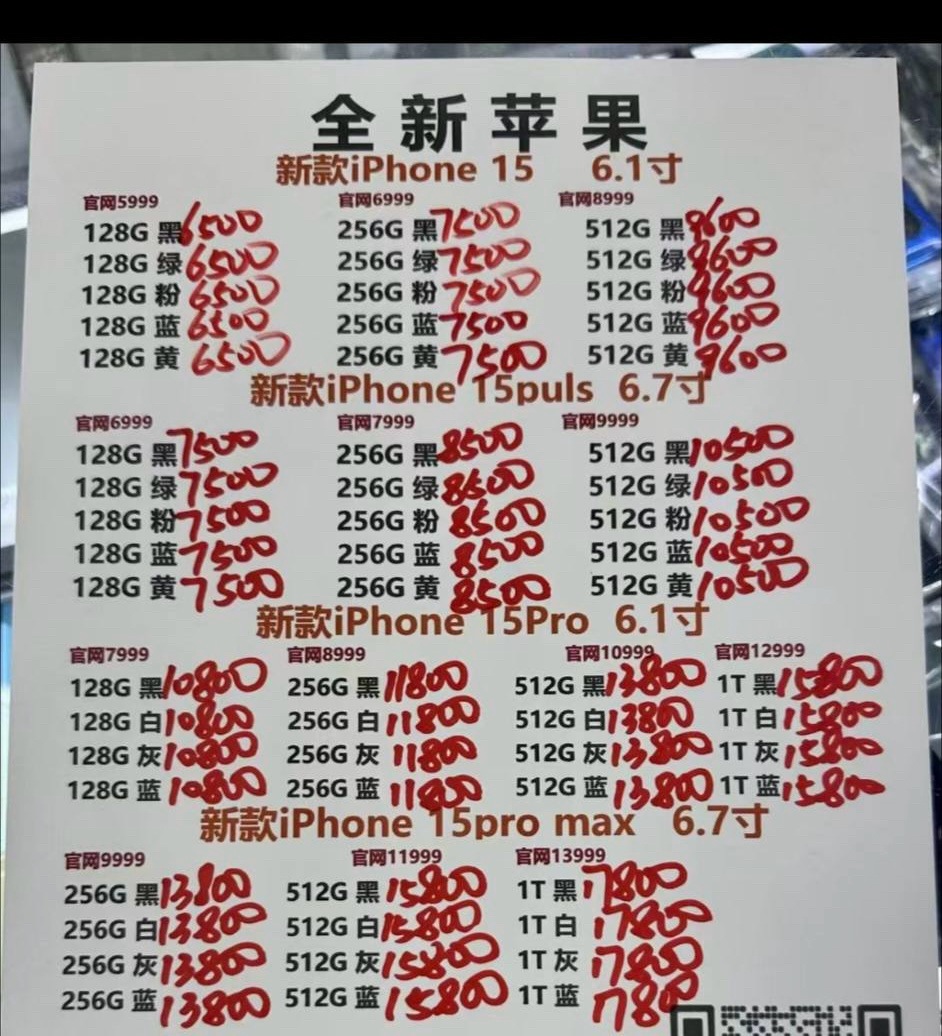 全新苹果
新款iPhone 15 6.1寸
官网5999 官网6999 官网8999
128G 黑 6500 256G 黑 7500 512G 黑 9600
128G 绿 6500 256G 绿 7500 512G 绿 9600
128G 粉 6500 256G 粉 7500 512G 粉 9600
128G 蓝 6500 256G 蓝 7500 512G 蓝 9600
128G 黄 6500 256G 黄 7500 512G 黄 9600
新款iPhone 15puls 6.7寸
官网6999 官网7999 官网9999
128G 黑 7500 256G 黑 8500 512G 黑 10500
128G 绿 7500 256G 绿 8500 512G 绿 10500
128G 粉 7500 256G 粉 8500 512G 粉 10500
128G 蓝 7500 256G 蓝 8500 512G 蓝 10500
128G 黄 7500 256G 黄 8500 512G 黄 10500
新款iPhone 15Pro 6.1寸
官网7999 官网8999 官网10999 官网12999
128G 黑 10800 256G 黑 11800 512G 黑 13800 1T 黑 15800
128G 白 10800 256G 白 11800 512G 白 13800 1T 白 15800
128G 灰 10800 256G 灰 11800 512G 灰 13800 1T 灰 15800
128G 蓝 10800 256G 蓝 11800 512G 蓝 13800 1T 蓝 15800
新款iPhone 15pro max 6.7寸
官网9999 官网11999 官网13999
256G 黑 13800 512G 黑 15800 1T 黑 17800
256G 白 13800 512G 白 15800 1T 白 17800
256G 灰 13800 512G 灰 15800 1T 灰 17800
256G 蓝 13800 512G 蓝 15800 1T 蓝 17800